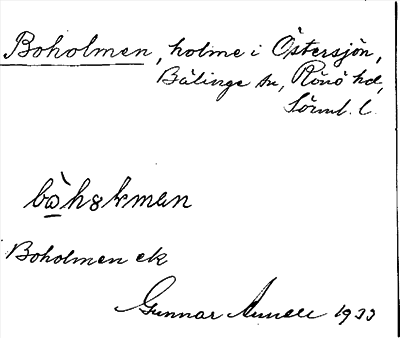 Boholmen, holme i Östersjön,
Bälinge sn, Rönö hd,
Sörml. l.
bò̲h8kman
Boholmen ek
Gunnar 1933